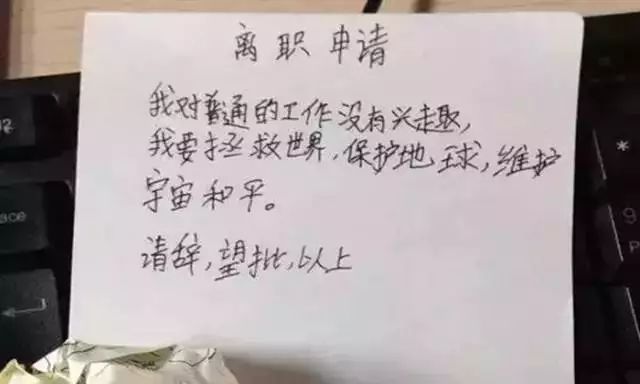 离职申请
我对普通的工作没有兴趣,
我要拯救世界,保护地球,维护
宇宙和平。
请辞,望批,以上
ace
9